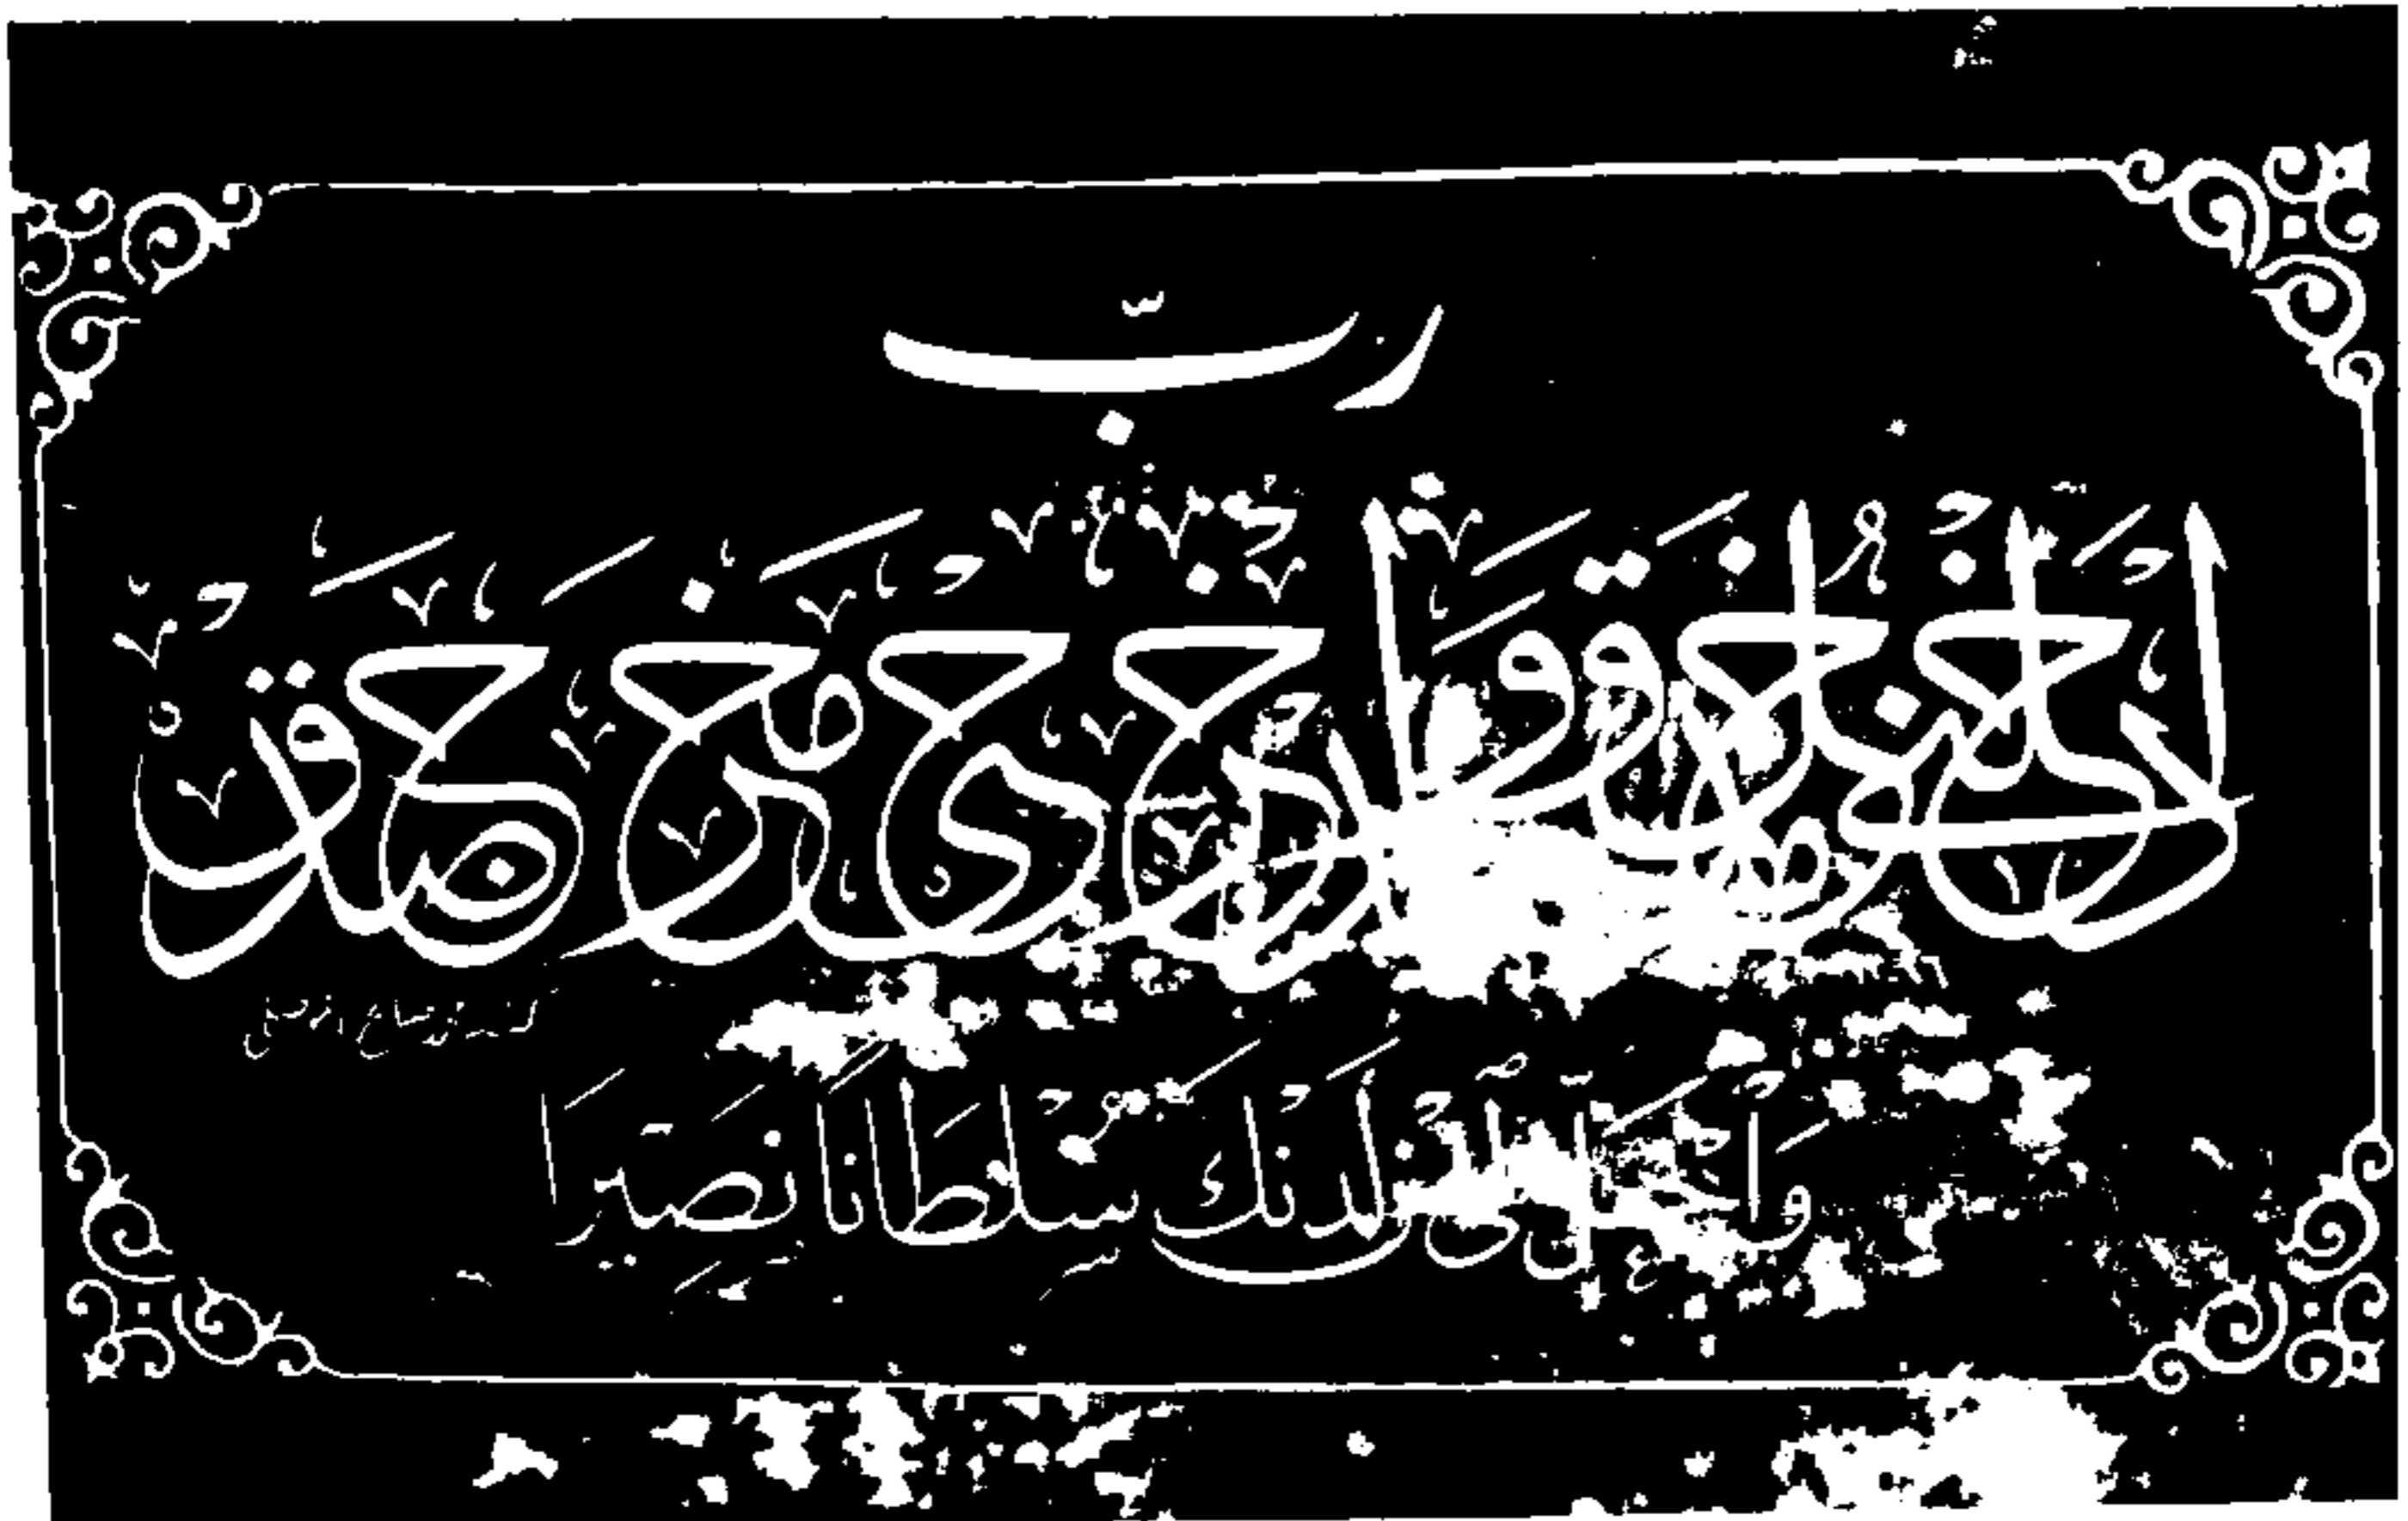 رب
أدخلني مدخل صدق وأخرجني مخرج صدق
واجعل لي من لدنك سلطانا نصيرا